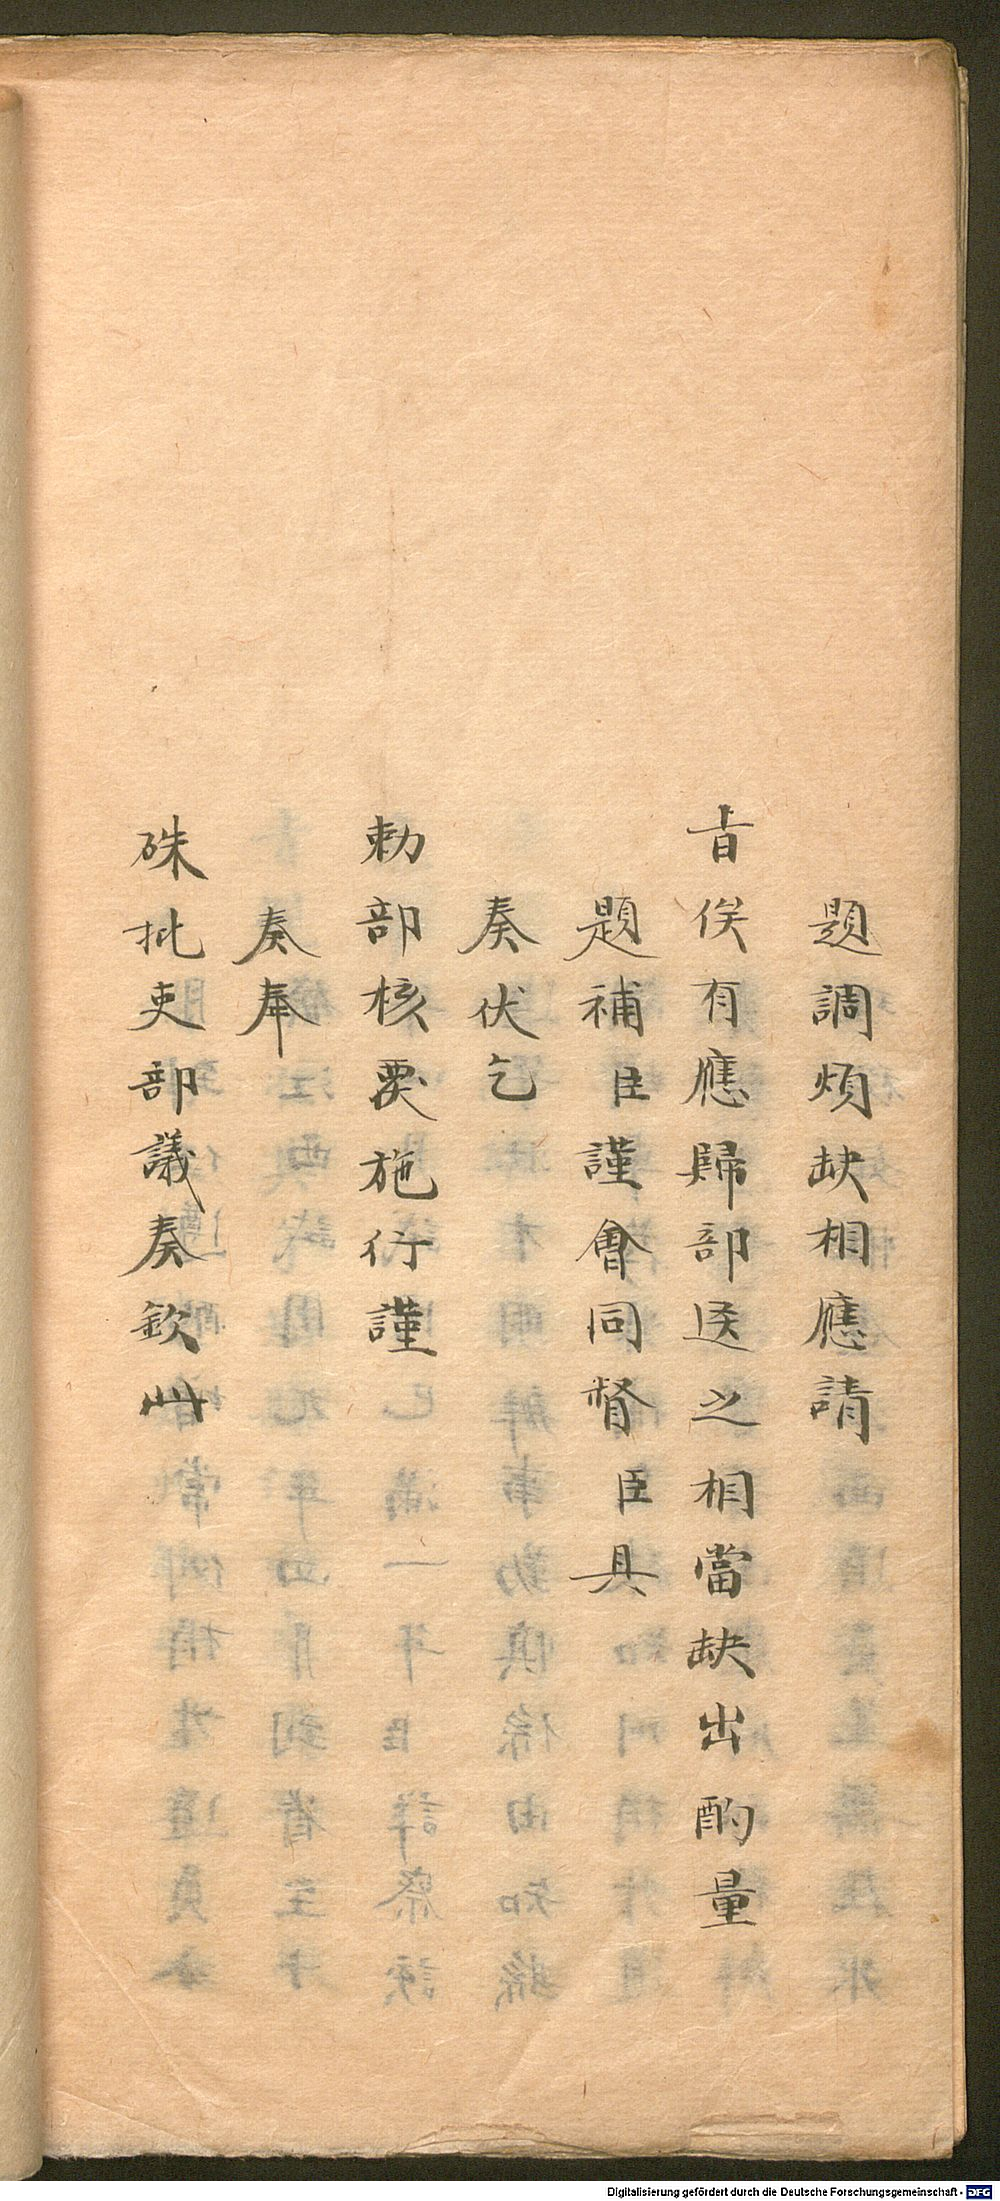 題調煩缺相應請
旨俟有應歸部送之相當缺出酌量
題補臣謹會同督臣具
奏伏乞
勅部核覆施行謹
奏奉
硃批吏部議奏欽此
Digitalisierung gefördert durch die Deutsche Forschungsgemeinschaft - DFG